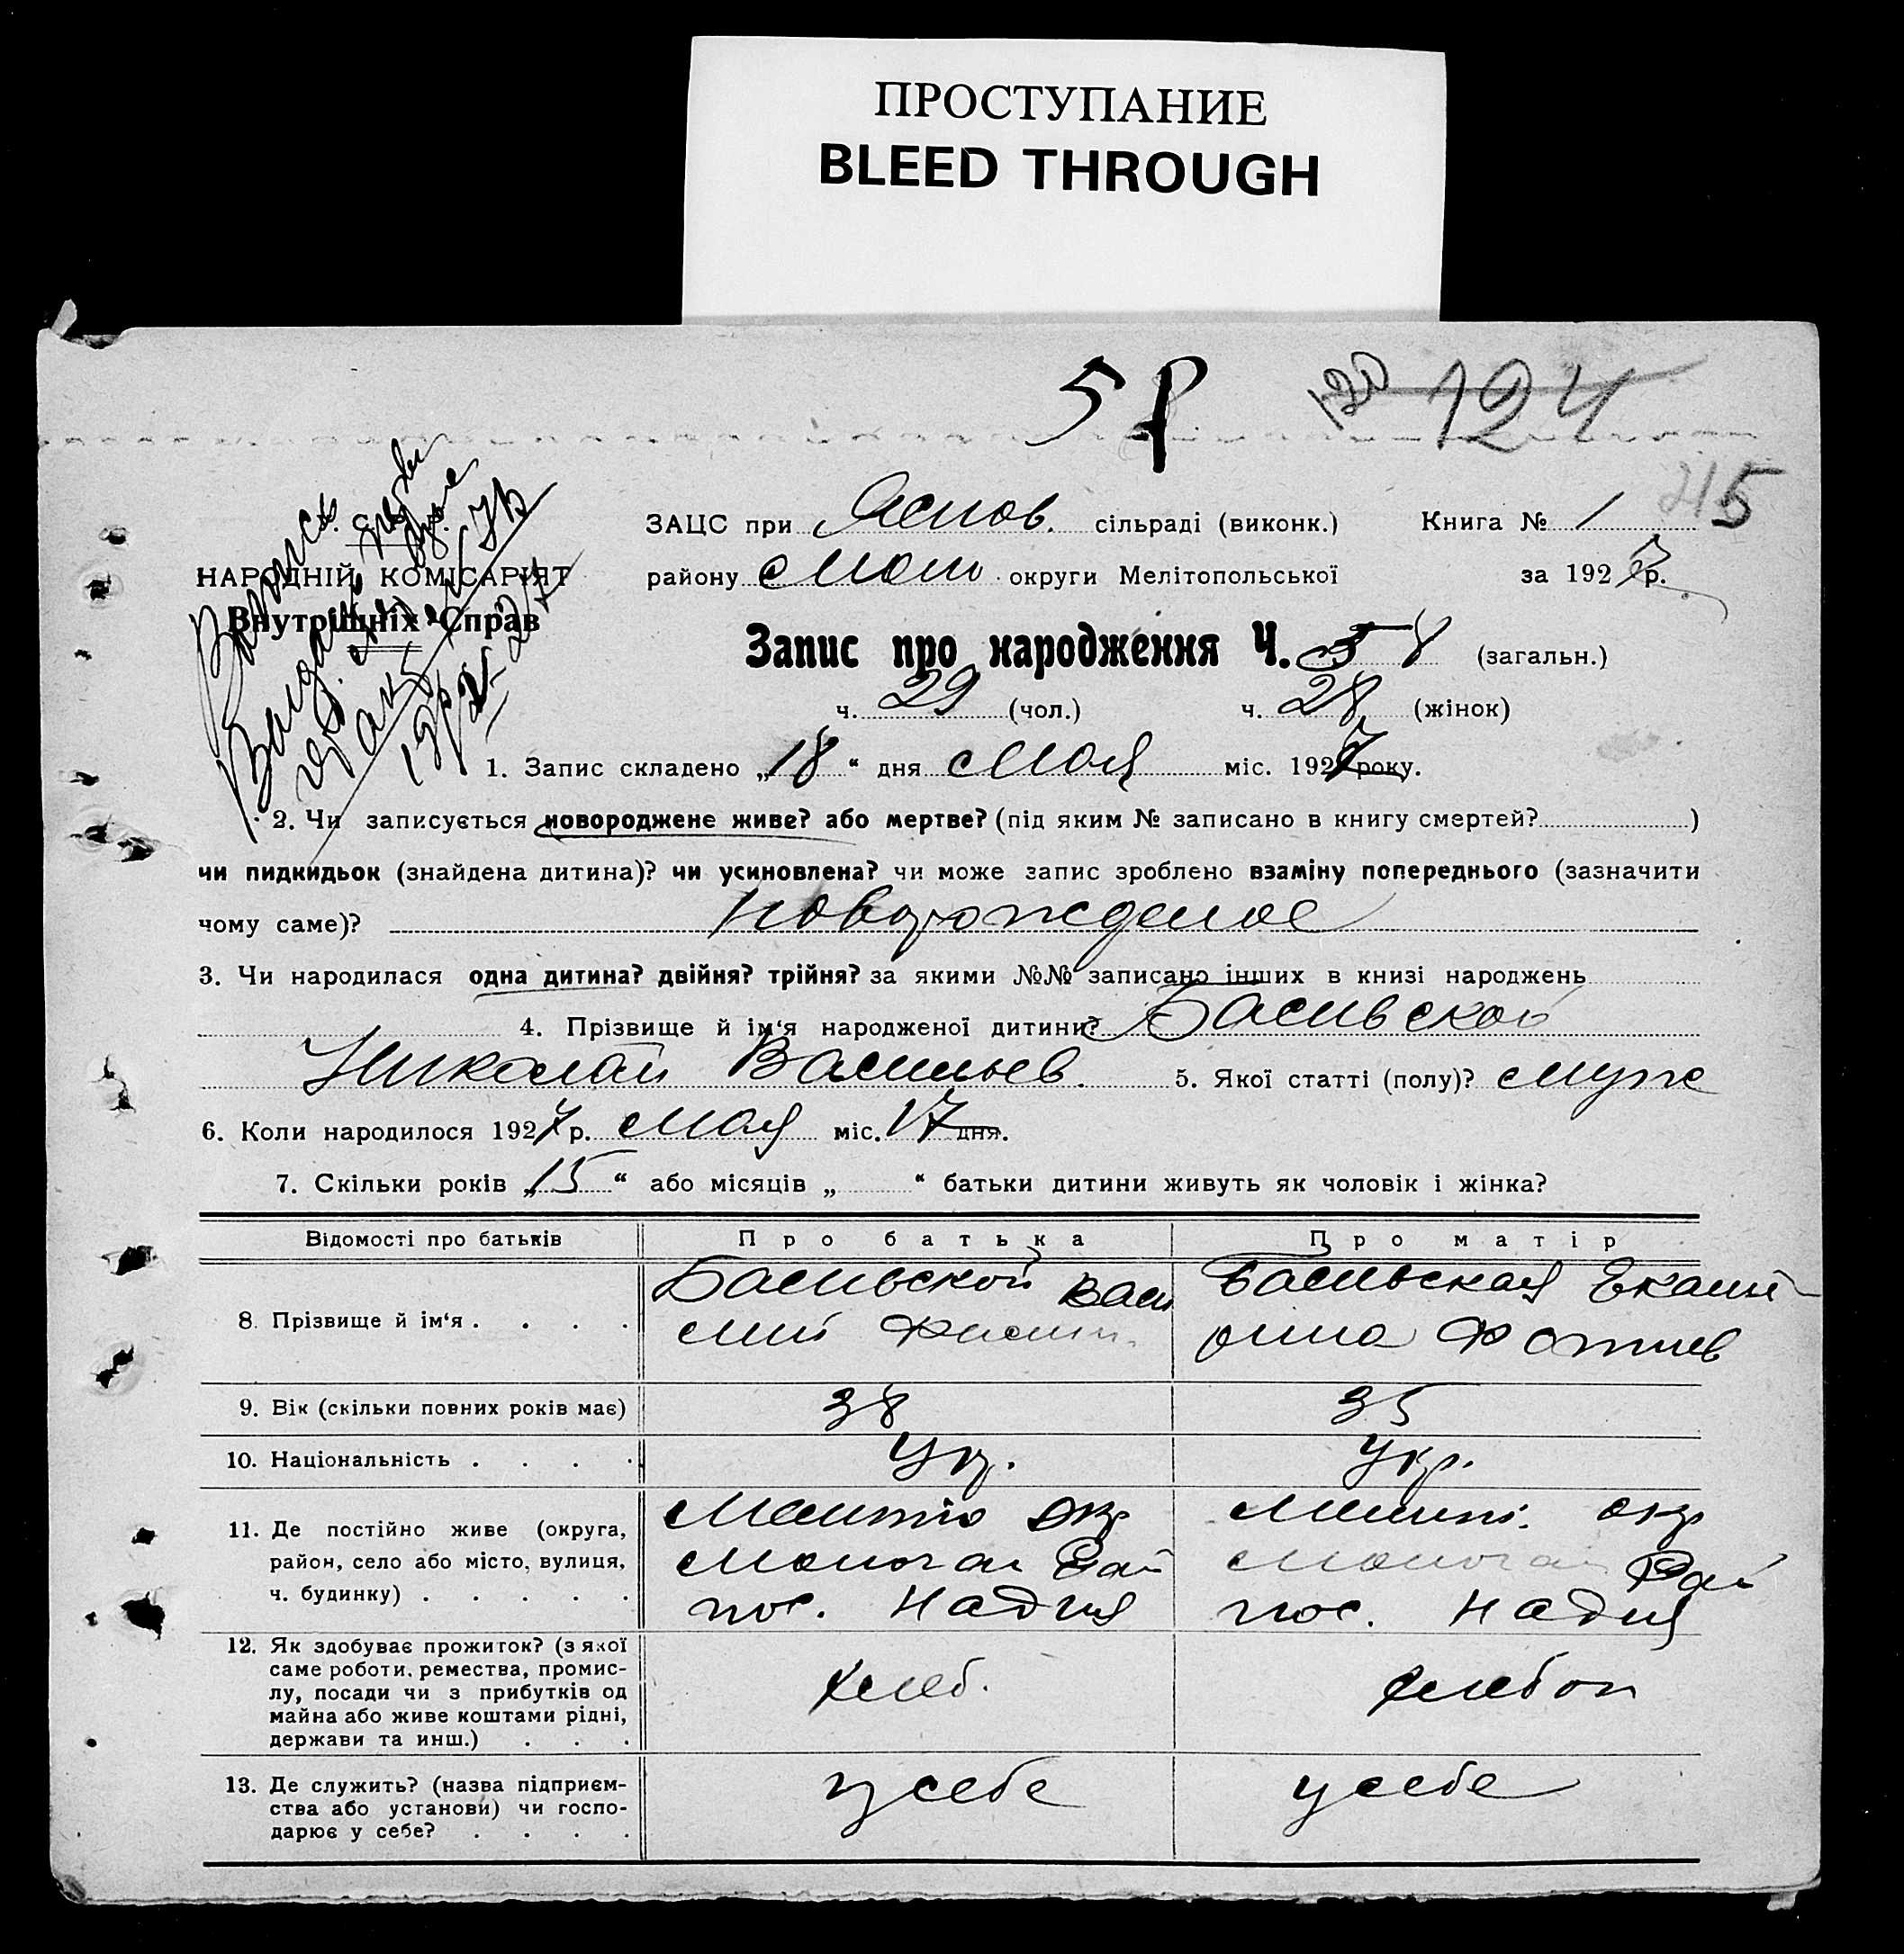 ПРОСТУПАНИЕ
BLEED THROUGH
58
120 124
215
НАРОДНІЙ КОМІСАРІЯТ
Внутрішніх Справ
ЗАЦС при Яснов. сільраді (виконк.) Книга № 1
району Моло округи Мелітопольської за 1927 р.
Запис про народження Ч. 58 (загальн.)
ч. 29 (чол.) ч. 28 (жінок)
1. Запис складено „18“ дня Мая міс. 1927 року.
2. Чи записується новороджене живе? або мертве? (під яким № записано в книгу смертей? )
чи пидкидьок (знайдена дитина)? чи усиновлена? чи може запис зроблено взаміну попереднього (зазначити
чому саме)? Новорожденое
3. Чи народилася одна дитина? двійня? трійня? за якими №№ записано інших в книзі народжень
4. Прізвище й ім‘я народженої дитини? Басивской
Николай Васильев. 5. Якої статті (полу)? муж
6. Коли народилося 1927 р. Мая міс. 17 дня.
7. Скільки років „15“ або місяців „ “ батьки дитини живуть як чоловік і жінка?
Відомості про батьків Про батька Про матір
8. Прізвище й ім‘я . . . . Басивской Васи Басивская Екате-
лий рина Фотиев
9. Вік (скільки повних років має) 38 35
10. Національність . . . . Укр. Укр.
11. Де постійно живе (округа, Мелито окр Мелит. окр
район, село або місто, вулиця, Молочан Рай Молочан Рай
ч. будинку) . . . . . пос. Надия пос. Надия
12. Як здобуває прожиток? (з якої
саме роботи, ремества, промис-
лу, посади чи з прибутків од хлеб. хлебоп
майна або живе коштами рідні,
держави та инш.) . . .
13. Де служить? (назва підприєм- у себе у себе
ства або установи) чи госпо-
дарює у себе? . . . .